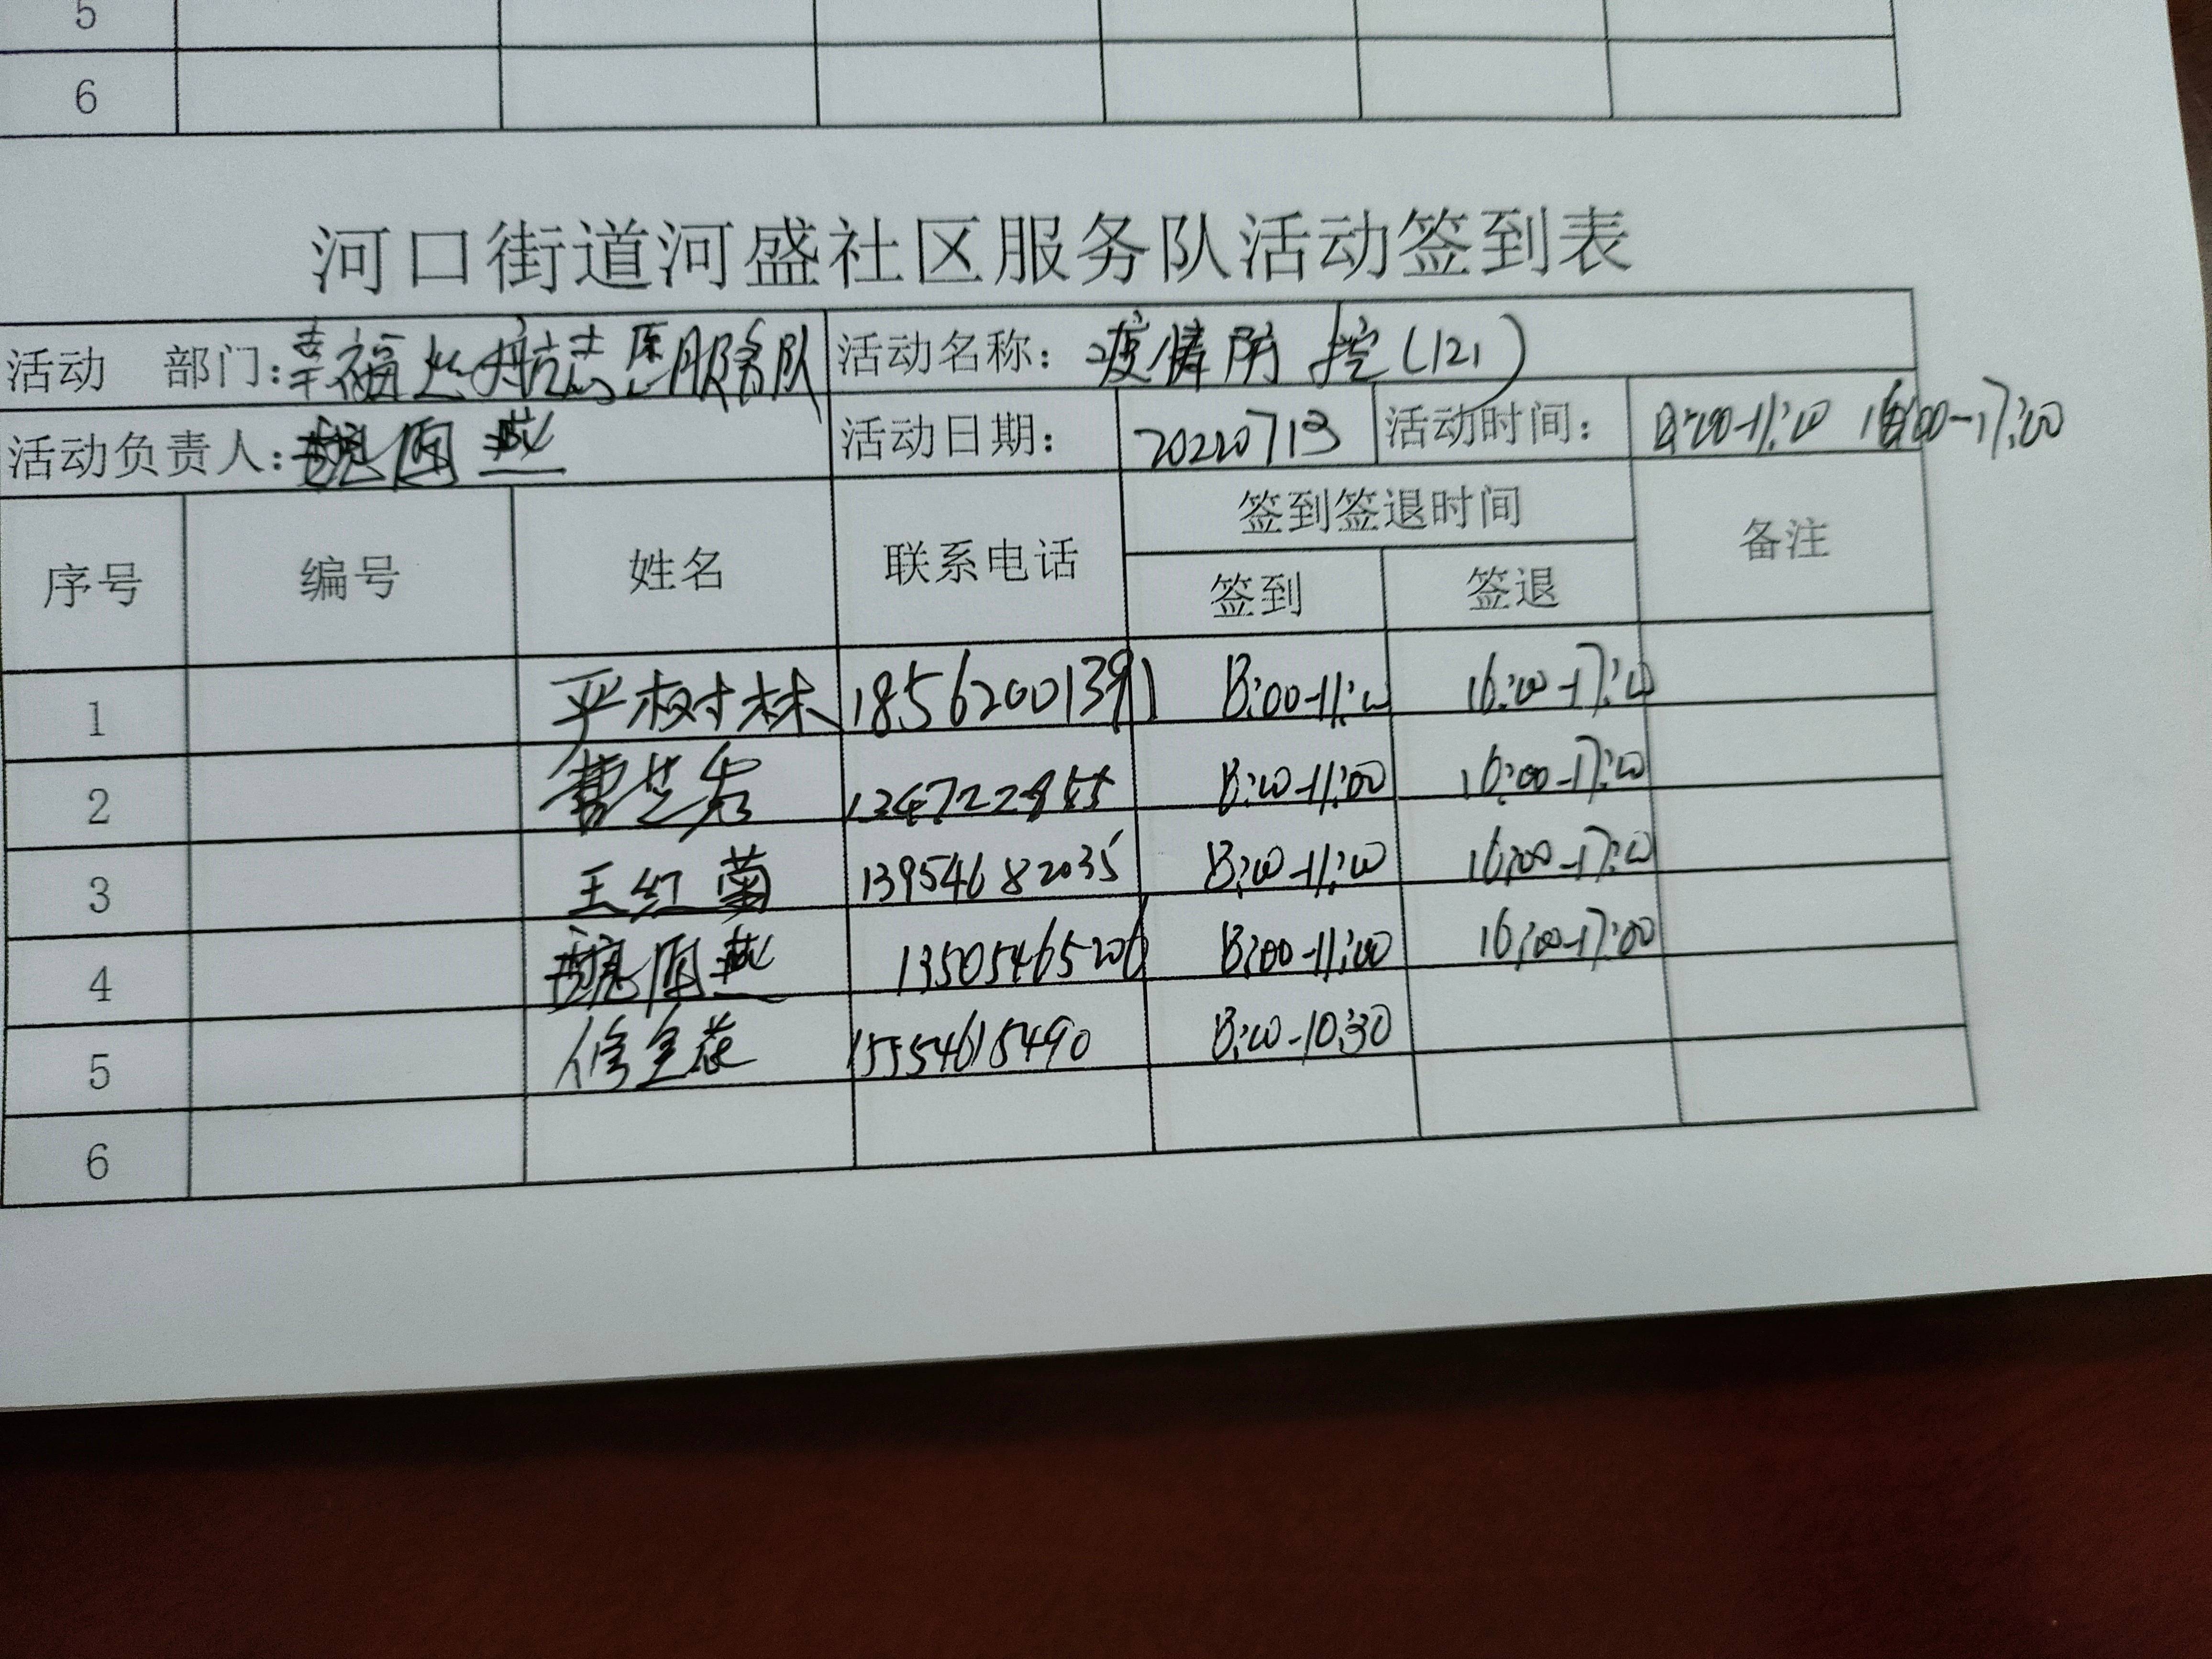 5
6
河口街道河盛社区服务队活动签到表
活动 部门：幸福起航志愿服务队 活动名称：疫情防控(121)
活动负责人： 活动日期：20220713 活动时间：8:00-11:00 16:00-17:00
序号 编号 姓名 联系电话 签到签退时间 备注
签到 签退
1 平树林 18562001391 8:00-11:00 16:00-17:00
2 曹芝 8:00-11:00 16:00-17:00
3 王红菊 13954682035 8:00-11:00 16:00-17:00
4 13505465206 8:00-11:00 16:00-17:00
5 修 15554615490 8:00-10:30
6